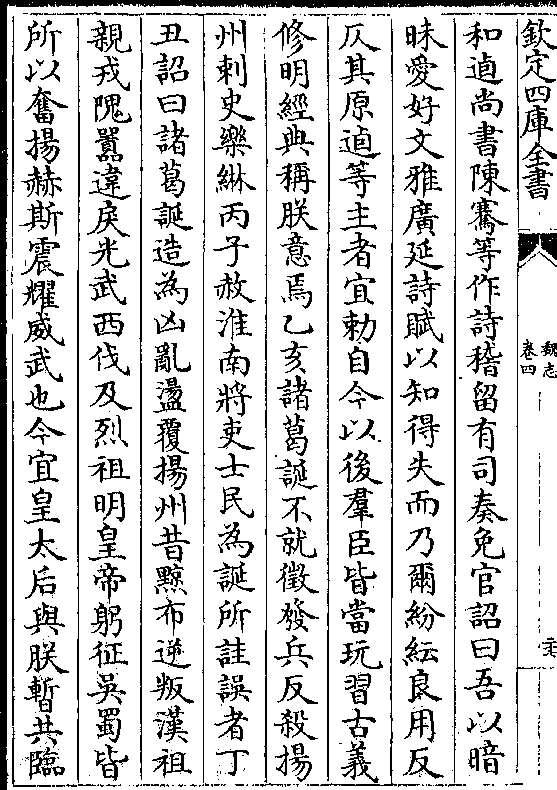 欽定四庫全書
魏志
卷四
和逌尚書陳騫等作詩稽留有司奏免官詔曰吾以暗
昧愛好文雅廣延詩賦以知得失而乃爾紛紜良用反
仄其原逌等主者宜勅自今以後羣臣皆當玩習古義
修明經典稱朕意焉乙亥諸葛誕不就徵發兵反殺揚
州刺史樂綝丙子赦淮南將吏士民為誕所詿誤者丁
丑詔曰諸葛誕造為凶亂盪覆揚州昔黥布逆叛漢祖
親戎隗囂違戾光武西伐及烈祖明皇帝躬征吳蜀皆
所以奮揚赫斯震耀威武也今宜皇太后與朕暫共臨